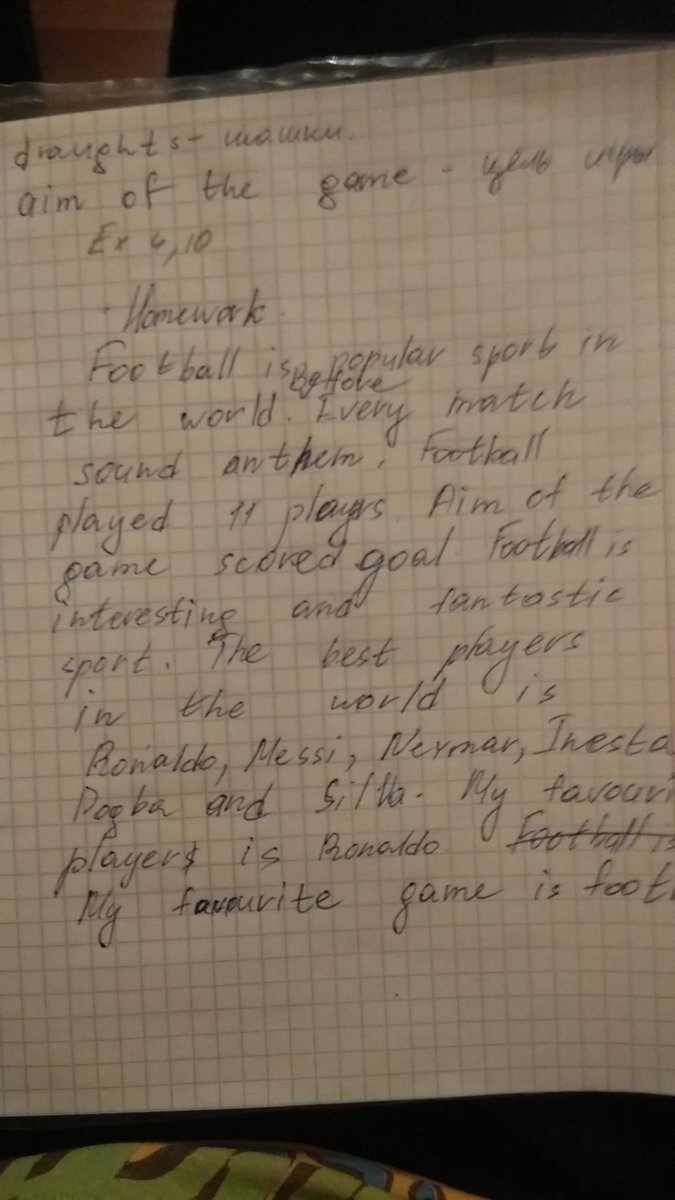 draughts - шашки.
aim of the game - цель игры
Ex 4, 10
Homework.
Football is popular sport in
Beffore
the world. Every match
sound anthem. Football
played 11 players. Aim of the
game scored goal. Football is
interesting and fantastic
sport. The best players
in the world is
Ronaldo, Messi, Nermar, Inesta
Pogba and Silba. My favouri
players is Ronaldo Football is
My favourite game is foot